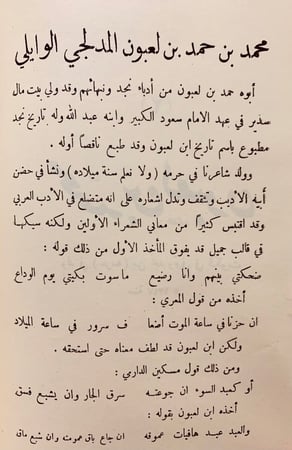 محمد بن حمد بن لعبون المدلجي الوايلي
أبوه حمد بن لعبون من أدباء نجد ونبهائهم وقد ولي بيت مال
سدير في عهد الامام سعود الكبير وابنه عبد الله وله تاريخ نجد
مطبوع باسم تاريخ ابن لعبون وقد طبع ناقصاً أوله .
وولد شاعرنا في حرمه ( ولا نعلم سنة ميلاده ) ونشأ في حضن
أبيه الأديب وتثقف وتدل اشعاره على انه متضلع في الأدب العربي
وقد اقتبس كثيراً من معاني الشعراء الأولين ولكنه سبكها
في قالب جميل قد يفوق المأخذ الأول من ذلك قوله :
ضحكتي بينهم وانا رضيع ماسوت بكيتي يوم الوداع
أخذه من قول المعري :
ان حزنا في ساعة الموت أضعا ف سرور في ساعة الميلاد
ولكن ابن لعبون قد لطف معناه حتى استحقه .
ومن ذلك قول مسكين الدارمي :
أو كعبد السوء ان جوعته سرق الجار وان يشبع فسق
أخذه ابن لعبون بقوله :
والعبد عبد هافيات عموقه ان جاع باق عمومته وان شبع ماقه